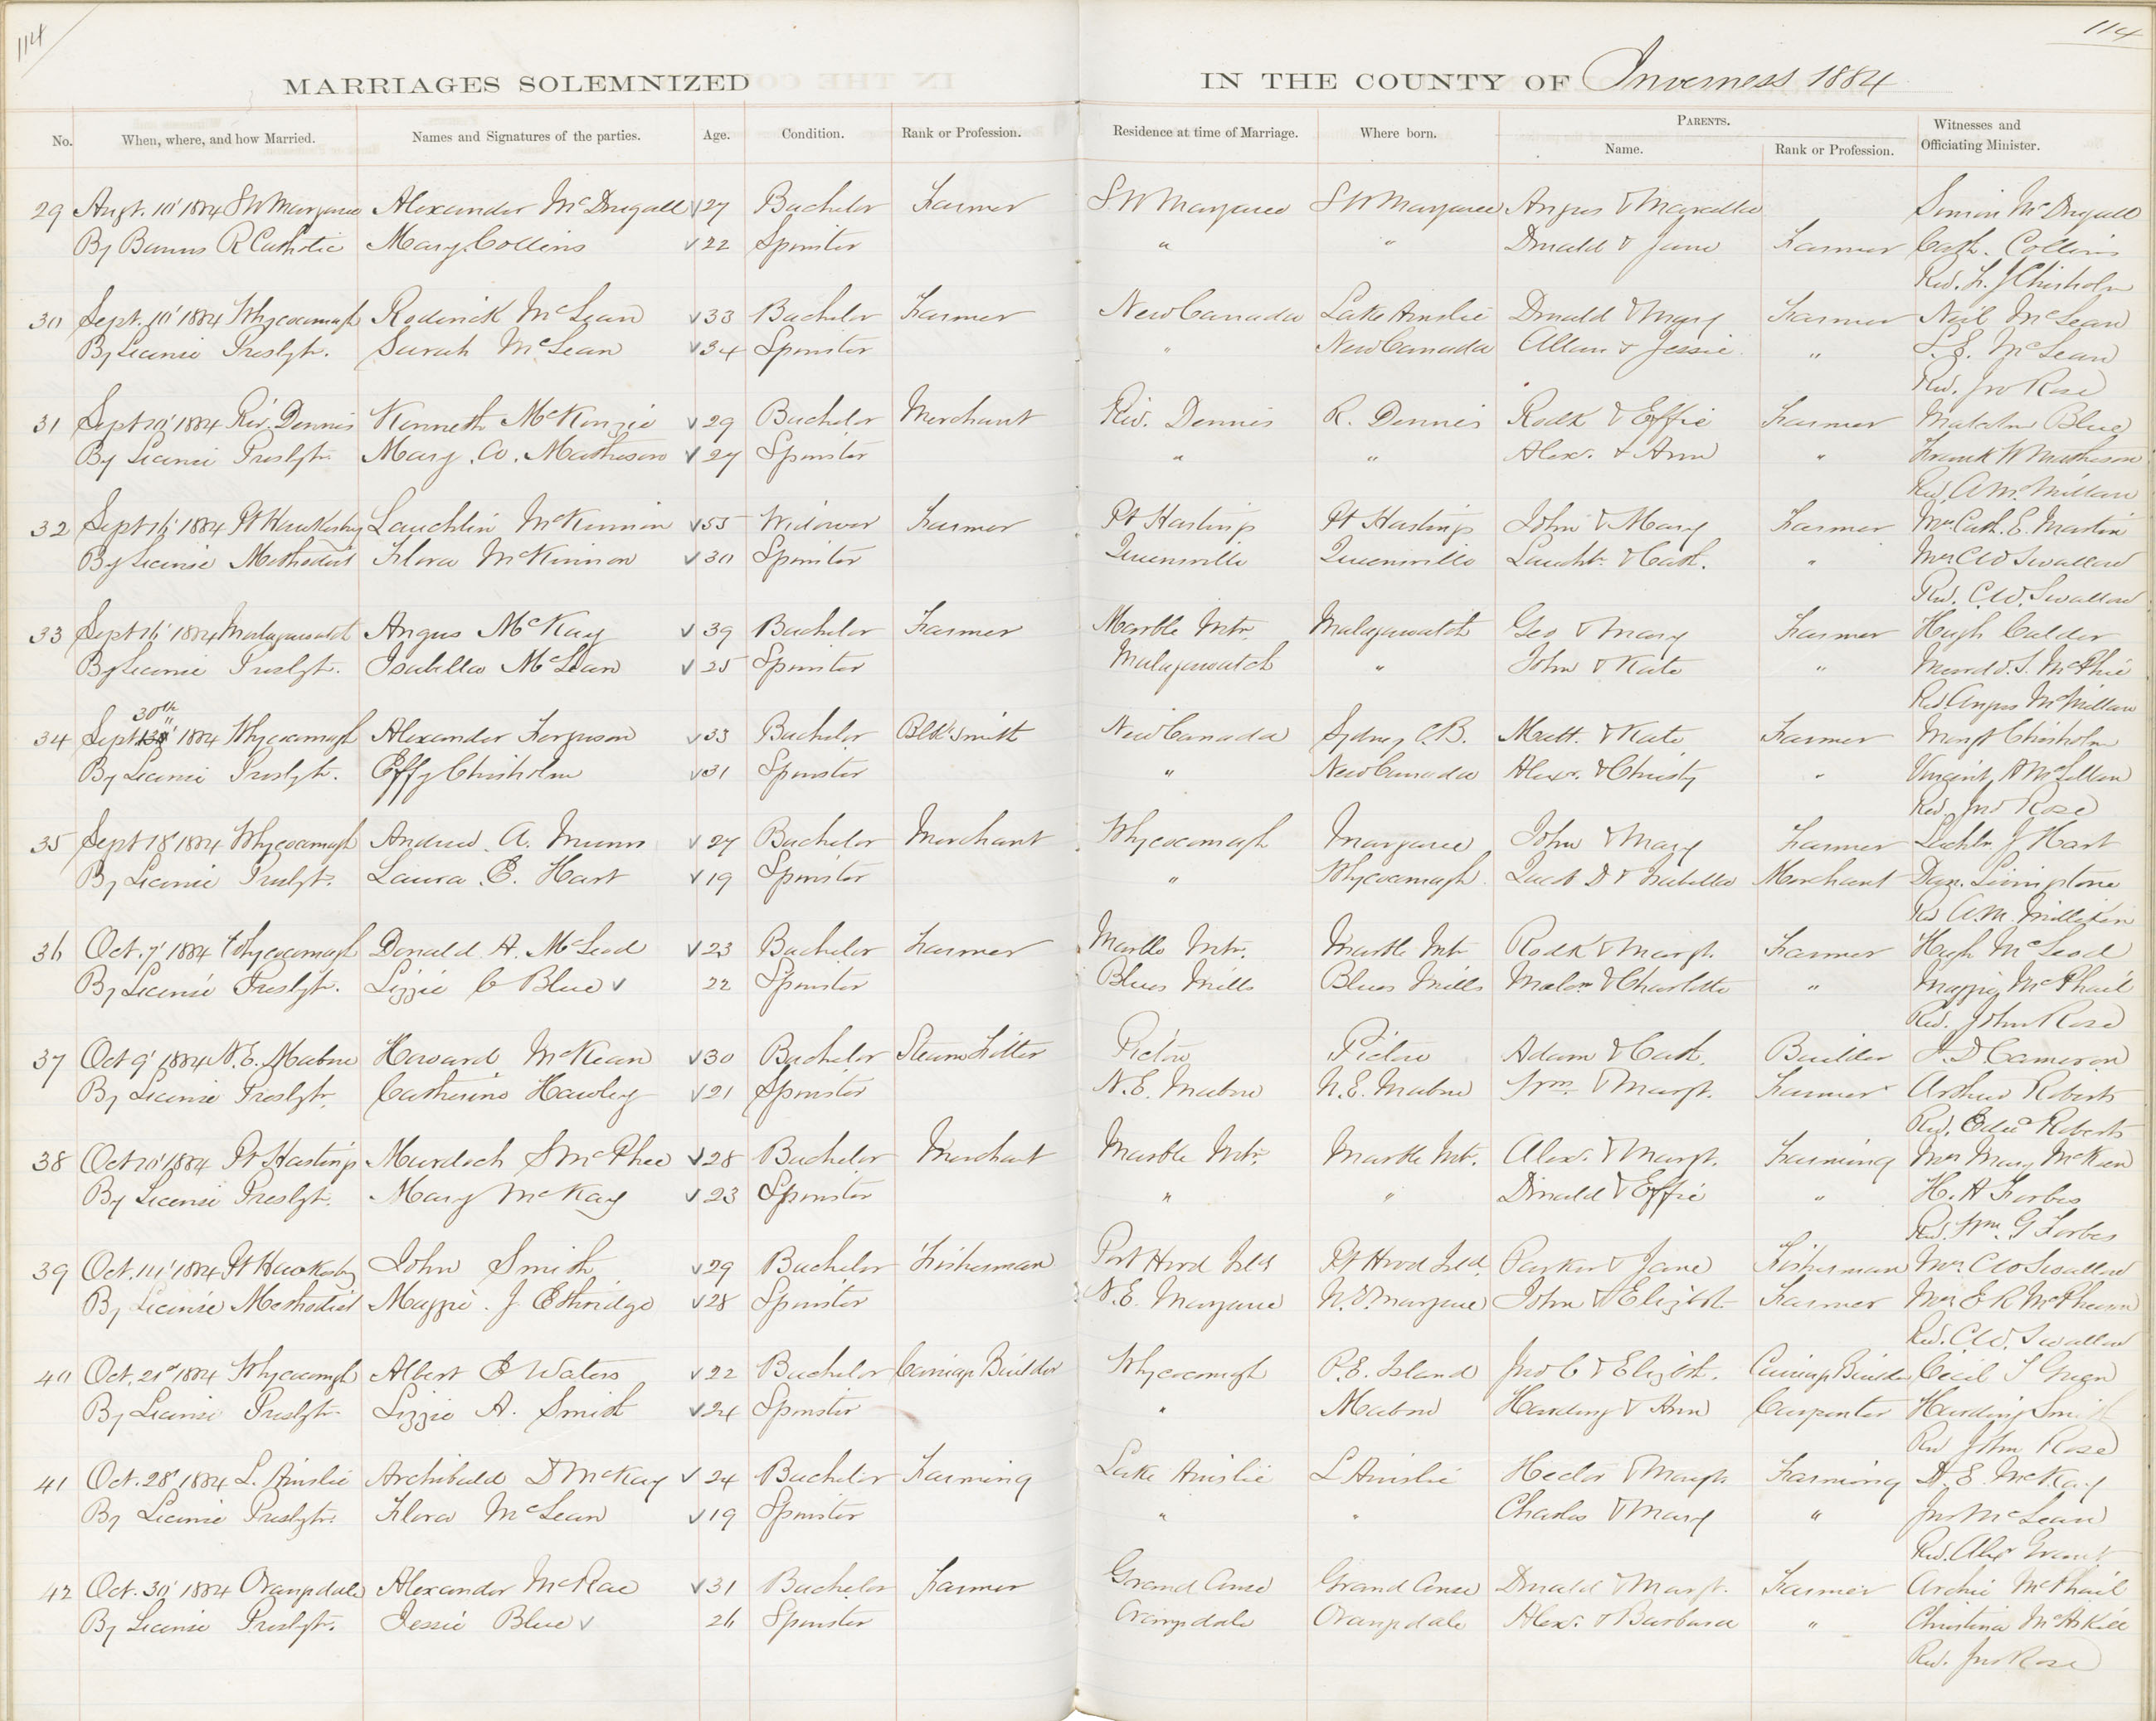 114
114
MARRIAGES SOLEMNIZED IN THE COUNTY OF Inverness 1884
No. When, where, and how Married. Names and Signatures of the parties. Age. Condition. Rank or Profession. Residence at time of Marriage. Where born. PARENTS. Name. Rank or Profession. Witnesses and Officiating Minister.
29 Augt. 10' 1884 S W Margaree Alexander McDugall 27 Bachelor Farmer S W Margaree S W Margaree Angus & Marcella Simon McDugall
By Banns R Catholic Mary Collins 22 Spinster " " Donald & Jane Farmer Cath. Collins
Rev. F. J Chisholm
30 Sept. 10' 1884 Whycocomagh Roderick McLean 33 Bachelor Farmer New Canada Lake Ainslie Donald & Mary Farmer Neil McLean
By License Presbytr. Sarah McLean 34 Spinster " New Canada Allan & Jessie " McLean
Rev. Jno Rose
31 Sept 1884 Riv. Dennis Kenneth McKenzie 29 Bachelor Merchant Riv. Dennis R. Dennis Rodk & Effie Farmer Malcolm Blue
By License Presbytr. Mary. A. Matheson 27 Spinster " " Alex. & Ann " Frank W Matheson
Rev. A McMillan
32 Sept 16' 1884 Pt Hawkesbury Lauchlin McKinnon 55 Widower Farmer Pt Hastings Pt Hastings John & Mary Farmer Mrs Cath. E. Martin
By License Methodist Flora McKinnon 30 Spinster Queensville Queensville Lauchn. & Cath. " Mrs C W Swallow
Rev. C. W. Swallow
33 Sept 16' 1884 Malagawatch Angus McKay 39 Bachelor Farmer Marble Mtn. Malagawatch Geo & Mary Farmer Hugh Calder
By License Presbyt. Isabella McLean 25 Spinster Malagawatch " John & Kate " Murd. S. McPhie
Rev. Angus McMillan
30th
34 Sept 1884 Whycocomagh Alexander Ferguson 33 Bachelor Blk'smith New Canada Sydney C.B. Matt. & Kate Farmer Margt Chisholm
By License Presbyt. Effy Chisholm 31 Spinster " New Canada Alex. & Christy " Vincent A McLellan
Rev. Jno Rose
35 Sept 18' 1884 Whycocomagh Andrew. A. Munro 27 Bachelor Merchant Whycocomagh Margaree John & Mary Farmer J Hart
By License Presbyt. Laura. E. Hart 19 Spinster " Whycocomagh D & Isabella Merchant Livingstone
Rev A. M. Milliken
36 Oct. 7' 1884 Whycocomagh Donald A. McLeod 23 Bachelor Farmer Marble Mtn. Marble Mtn Rodk & Margt. Farmer Hugh McLeod
By License Presbyt. Lizzie C Blue 22 Spinster Blues Mills Blues Mills Malcm & Charlotte " Maggie McPhail
Rev. John Rose
37 Oct 9' 1884 N. E. Mabou Howard McKean 30 Bachelor Steam Fitter Pictou Pictou Adam & Cath. Builder J. D Cameron
By License Presbytr. Catherine Hawley 21 Spinster N. E. Mabou N. E. Mabou Wm. & Margt. Farmer Arthur Roberts
Rev. Edwd Roberts
38 Oct 1884 Pt Hastings Murdoch S McPhee 28 Bachelor Merchant Marble Mtn. Marble Mt. Alex. & Margt. Farming Mrs Mary McKeen
By License Presbyt. Mary McKay 23 Spinster " " Donald & Effie " H. A Forbes
Rev. Wm. G Forbes
39 Oct. 1884 Pt Hawkesby John Smith 29 Bachelor Fisherman Port Hood Isld Pt Hood Isld. Parker & Jane Fisherman Mrs C W Swallow
By License Methodist Maggie. J. Ethridge 28 Spinster N. E. Margaree N. E. Margaree John & Elizbth Farmer Mrs E R McPherson
Rev. C W. Swallow
40 Oct. 21st 1884 Whycocomgh Albert E Waters 22 Bachelor Carriage Builder Whycocomagh P. E. Island Jno C & Elizbth. Carriage Builder Cecil Green
By License Presbytr. Lizzie A. Smith 24 Spinster " Mabou Harding & Ann Carpenter Harding Smith
Rev John Rose
41 Oct. 28' 1884 L. Ainslie Archibald D McKay 24 Bachelor Farming Lake Ainslie L Ainslie Hector & Margt. Farming A. E. McKay
By License Presbytr. Flora McLean 19 Spinster " " Charles & Mary " Jno McLean
Rev. Alexr Grant
42 Oct. 30' 1884 Orangedale Alexander McRae 31 Bachelor Farmer Grand Anse Grand Anse Donald & Margt. Farmer Archie McPhail
By License Presbyt. Jessie Blue 26 Spinster Orangedale Orangedale Alex. & Barbara " Christina McAskill
Rev. Jno Rose